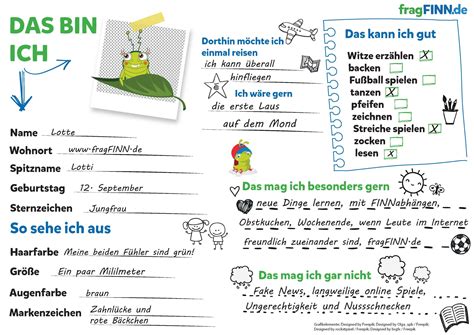 fragFINN.de
DAS BIN
ICH
Dorthin möchte ich
einmal reisen
ich kann überall
hinfliegen
Ich wäre gern
die erste Laus
auf dem Mond
Das kann ich gut
Witze erzählen X
backen
Fußball spielen
tanzen X
pfeifen
zeichnen
Streiche spielen X
zocken
lesen X
Name Lotte
Wohnort www.fragFINN.de
Spitzname Lotti
Geburtstag 12. September
Sternzeichen Jungfrau
So sehe ich aus
Haarfarbe Meine beiden Fühler sind grün!
Größe Ein paar Millimeter
Augenfarbe braun
Markenzeichen Zahnlücke und
rote Bäckchen
Das mag ich besonders gern
neue Dinge lernen, mit FINNabhängen,
Obstkuchen, Wochenende, wenn Leute im Internet
freundlich zueinander sind, fragFINN.de
Das mag ich gar nicht
Fake News, langweilige online Spiele,
Ungerechtigkeit und Nussschnecken